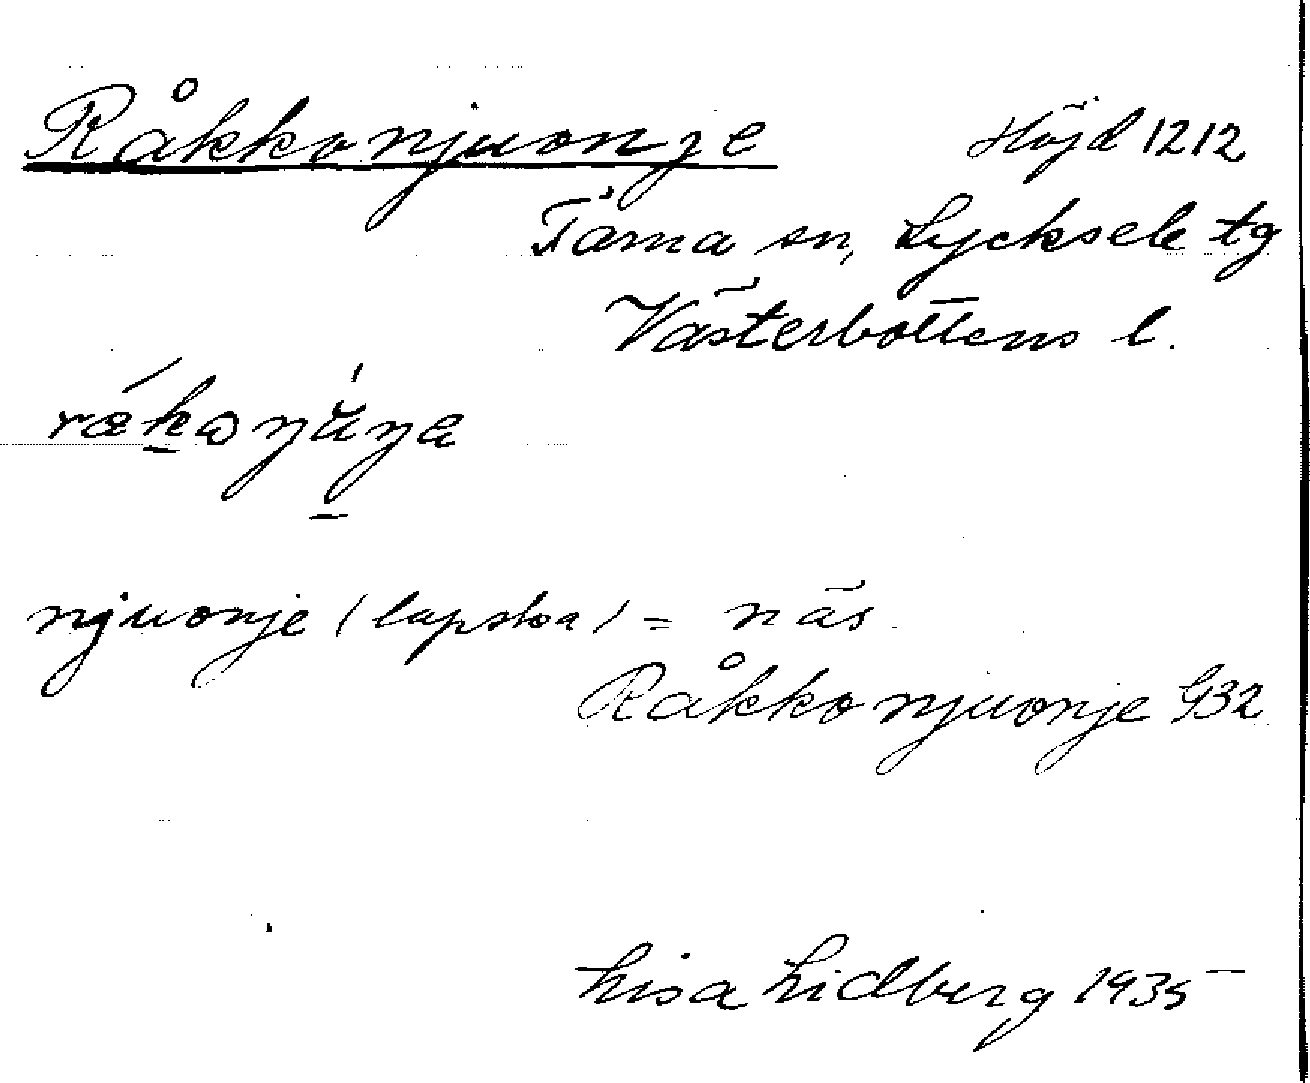 Råkkonjuonje Höjd 1212
Tärna sn, Lycksele tg
Västerbottens l.
njuonje (lapska) = näs
Råkkonjuonje G32
Lisa Lidberg 1935